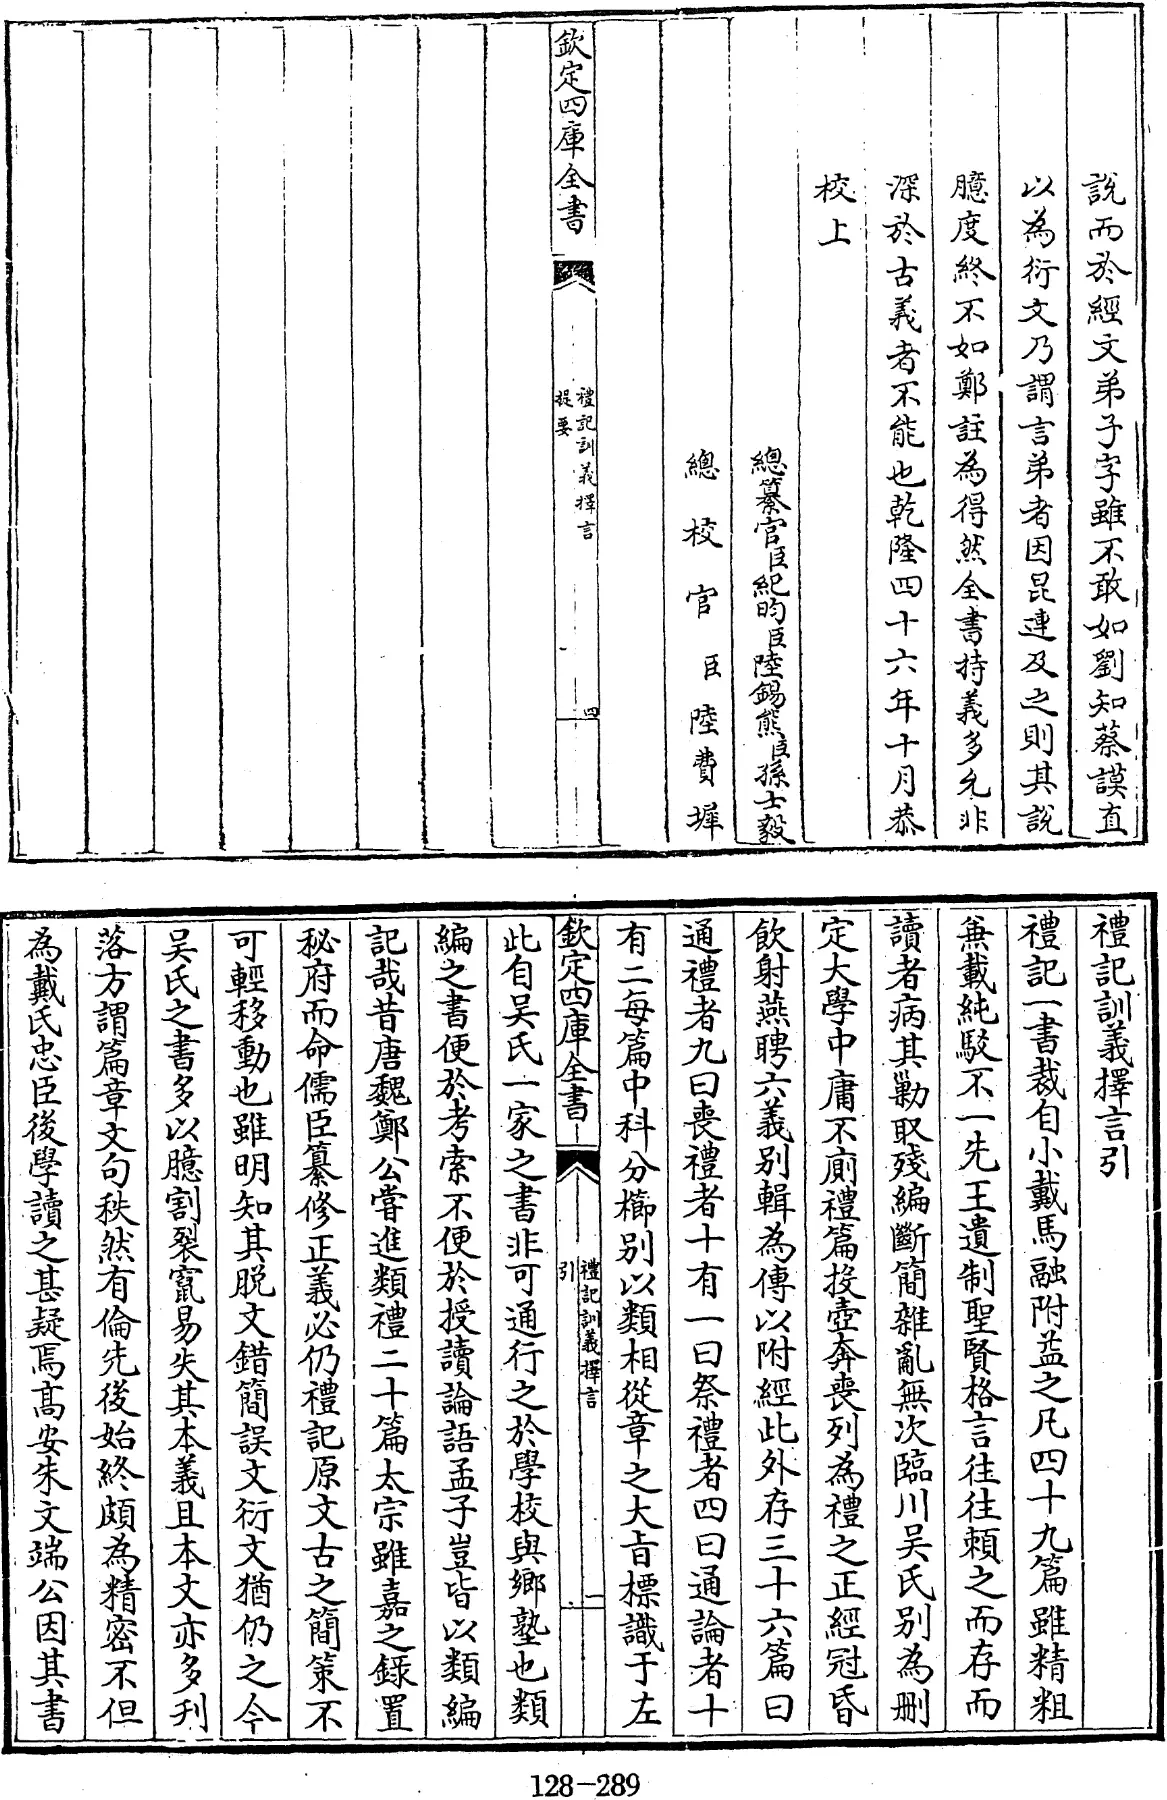 說而於經文弟子字雖不敢如劉知蔡謨直
以為衍文乃謂言弟者因昆連及之則其說
臆度終不如鄭註為得然全書持義多允非
深於古義者不能也乾隆四十六年十月恭
校上
總纂官臣紀昀臣陸錫熊臣孫士毅
總校官臣陸費墀
欽定四庫全書
禮記訓義擇言
提要
四
禮記訓義擇言引
禮記一書裁自小戴馬融附益之凡四十九篇雖精粗
兼載純駁不一先王遺制聖賢格言往往頼之而存而
讀者病其勦取殘編斷簡雜亂無次臨川吴氏别為刪
定大學中庸不廁禮篇投壺奔喪列為禮之正經冠昏
飲射燕聘六義别輯為傳以附經此外存三十六篇曰
通禮者九曰喪禮者十有一曰祭禮者四曰通論者十
有二每篇中科分櫛别以類相從章之大旨標識于左
欽定四庫全書
禮記訓義擇言
引
一
此自吴氏一家之書非可通行之於學校與鄉塾也類
編之書便於考索不便於授讀論語孟子豈皆以類編
記哉昔唐魏鄭公嘗進類禮二十篇太宗雖嘉之錄置
秘府而命儒臣纂修正義必仍禮記原文古之簡策不
可輕移動也雖明知其脱文錯簡誤文衍文猶仍之今
吴氏之書多以臆割裂竄易失其本義且本文亦多刋
落方謂篇章文句秩然有倫先後始終頗為精密不但
為戴氏忠臣後學讀之甚疑焉髙安朱文端公因其書
128-289